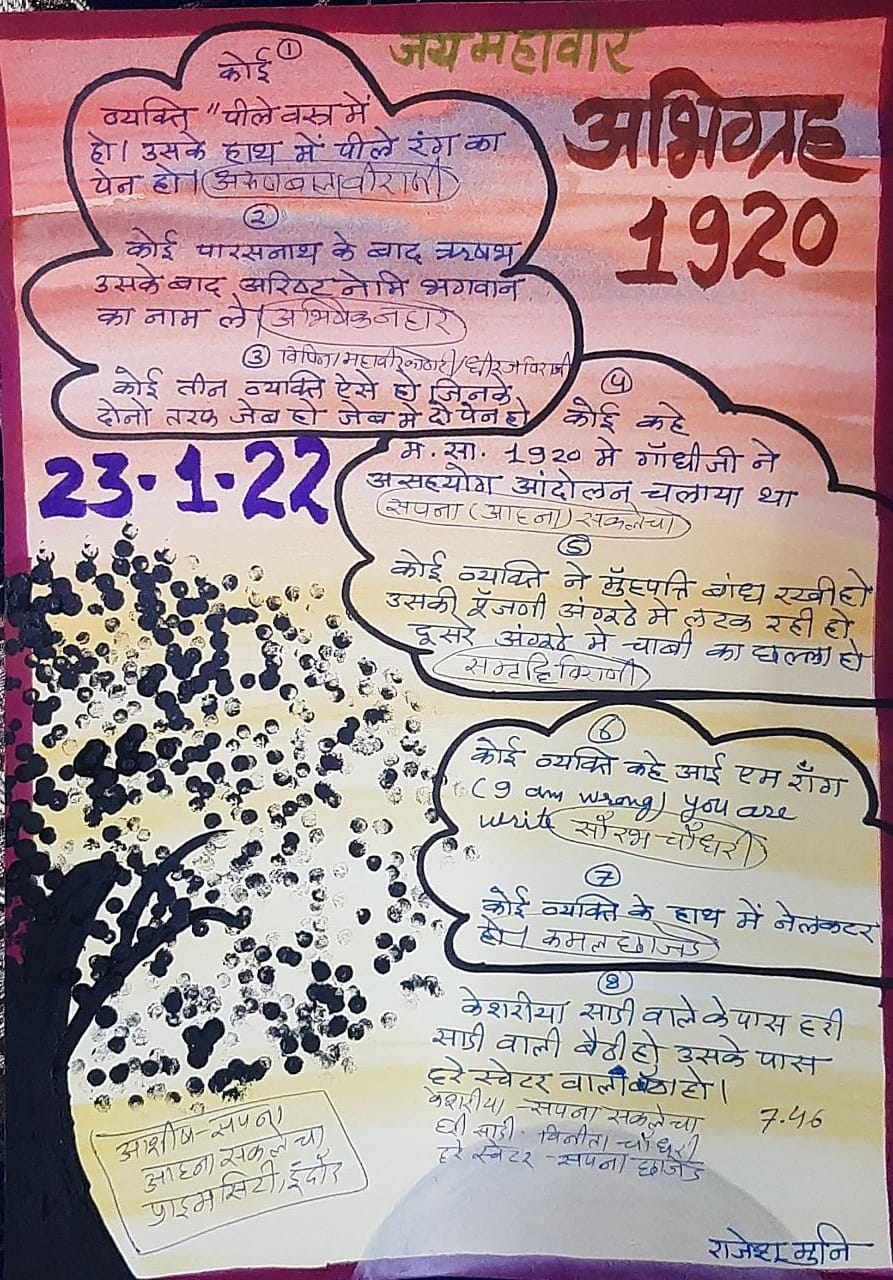 जय महावीर
अभिग्रह
1920
①
कोई
व्यक्ति "पीले वस्त्र में
हो। उसके हाथ में पीले रंग का
पेन हो।
②
कोई पारसनाथ के बाद ऋषभ
उसके बाद अरिष्टनेमि भगवान
का नाम ले। अभिषेक नहार
③ विपिन/महावीर
कोई तीन व्यक्ति ऐसे हो जिनके
दोनो तरफ जेब हो जेब मे दो पेन हो
23·1·22
④
कोई कहे
म. सा. 1920 मे गाँधीजी ने
असहयोग आंदोलन चलाया था
सपना (आहना) सकलेचा
⑤
कोई व्यक्ति ने मुँहपत्ति बांध रखी हो
उसकी पूँजणी अंगूठे मे लटक रही हो
दूसरे अंगूठे मे चाबी का छल्ला हो
विराणी
⑥
कोई व्यक्ति कहे आई एम राँग
(I am wrong) you are
write सौरभ चौधरी
⑦
कोई व्यक्ति के हाथ में नेलकटर
हो। कमल छाजेड
⑧
केशरीया साडी वाले के पास हरी
साडी वाली बैठी हो उसके पास
हरे स्वेटर वाली हो।
केशरीया - सपना सकलेचा
7.46
हरी साडी - विनीता चौधरी
हरे स्वेटर - सपना छाजेड
आशीष - सपना
आहना सकलेचा
प्राइम सिटी, इंदौर
राजेश मुनि